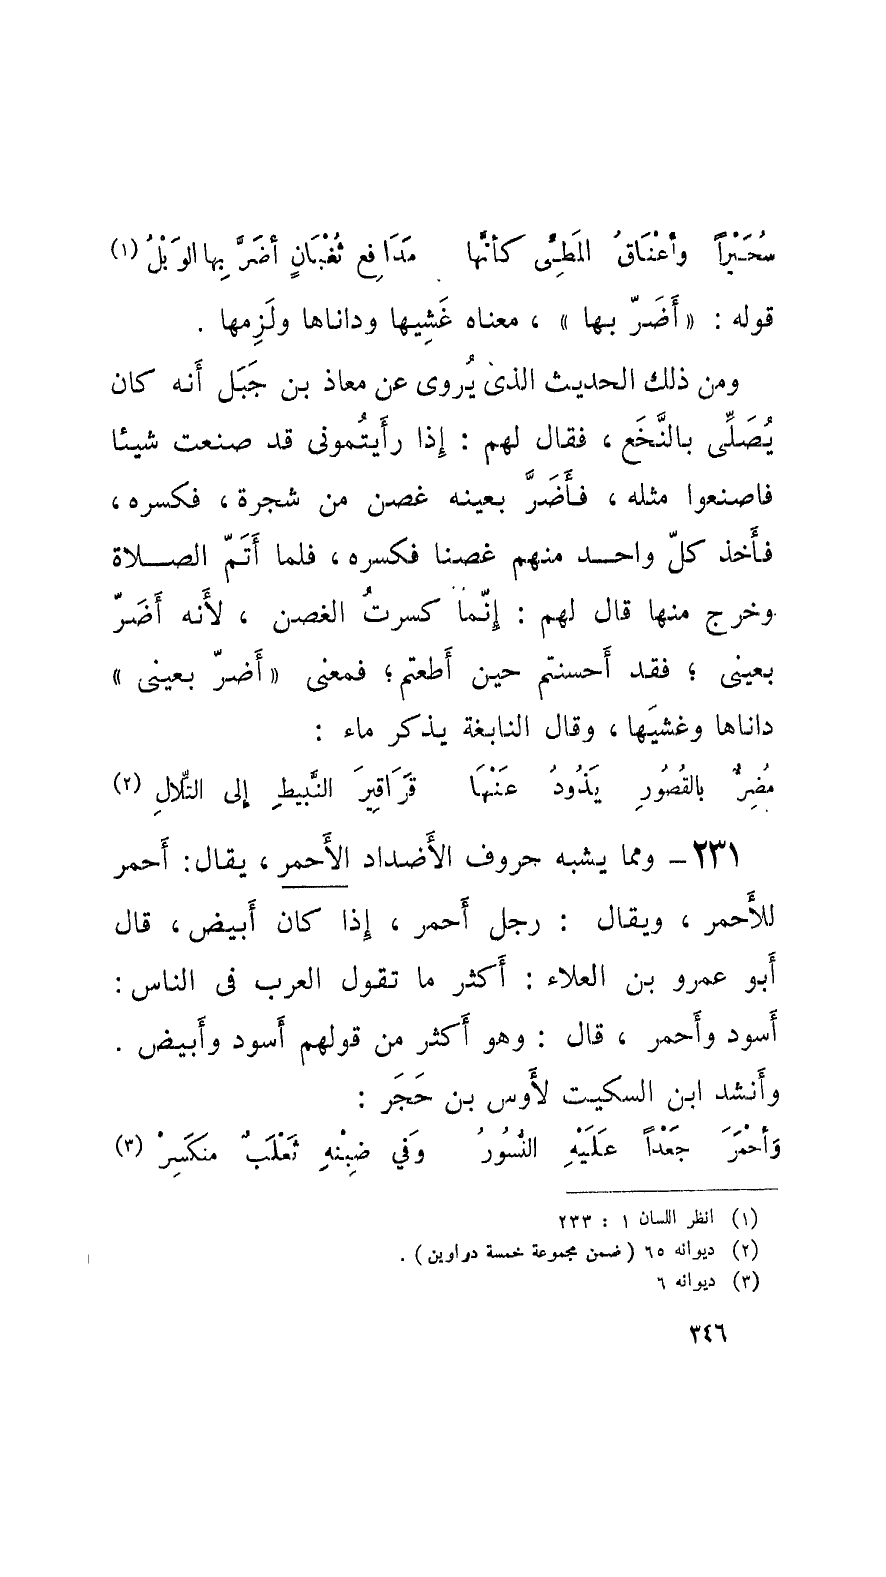 سُحَيْراً وأعْنَاقُ المَطِىِّ كأنَّها مَدَافِع ثُغْبَانٍ أضَرَّ بِها الوَبْلُ (١)
قوله : «أَضَرّ بها » ، معناه غَشِيها وداناها ولَزِمها .
ومن ذلك الحديث الذى يُروى عن معاذ بن جَبَل أَنه كان
يُصَلِّى بالنَّخَع ، فقال لهم : إِذا رأَيتُمونى قد صنعت شيئا
فاصنعوا مثله ، فأَضَرَّ بعينه غصن من شجرة ، فكسره ،
فأَخذ كلّ واحد منهم غصنا فكسره ، فلما أَتَمّ الصلاة
وخرج منها قال لهم : إِنّما كسرتُ الغصن ، لأَنه أَضَرّ
بعينى ؛ فقد أَحسنتم حين أَطعتم ؛ فمعنى «أَضرّ بعينى »
داناها وغشيَها ، وقال النابغة يذكر ماء :
مُضِرٌّ بالقُصُورِ يَذُودُ عَنْهَا قَرَاقِيرَ النَّبيطِ إلى التِّلالِ (٢)
٢٣١ – ومما يشبه حروف الأَضداد الأَحمر ، يقال : أَحمر
للأَحمر ، ويقال : رجل أَحمر ، إِذا كان أَبيض ، قال
أَبو عمرو بن العلاء : أَكثر ما تقول العرب فى الناس :
أَسود وأَحمر ، قال : وهو أَكثر من قولهم أَسود وأَبيض .
وأَنشد ابن السكيت لأَوس بن حَجَر :
وَأحْمَرَ جَعْداً عَلَيْهِ النُّسُورُ وَفي ضِبْنِهِ ثَعْلَبٌ منكَسِرْ (٣)
(١) انظر اللسان ١ : ٢٣٣
(٢) ديوانه ٦٥ ( ضمن مجموعة خمسة دواوين ) .
(٣) ديوانه ٦
٣٤٦